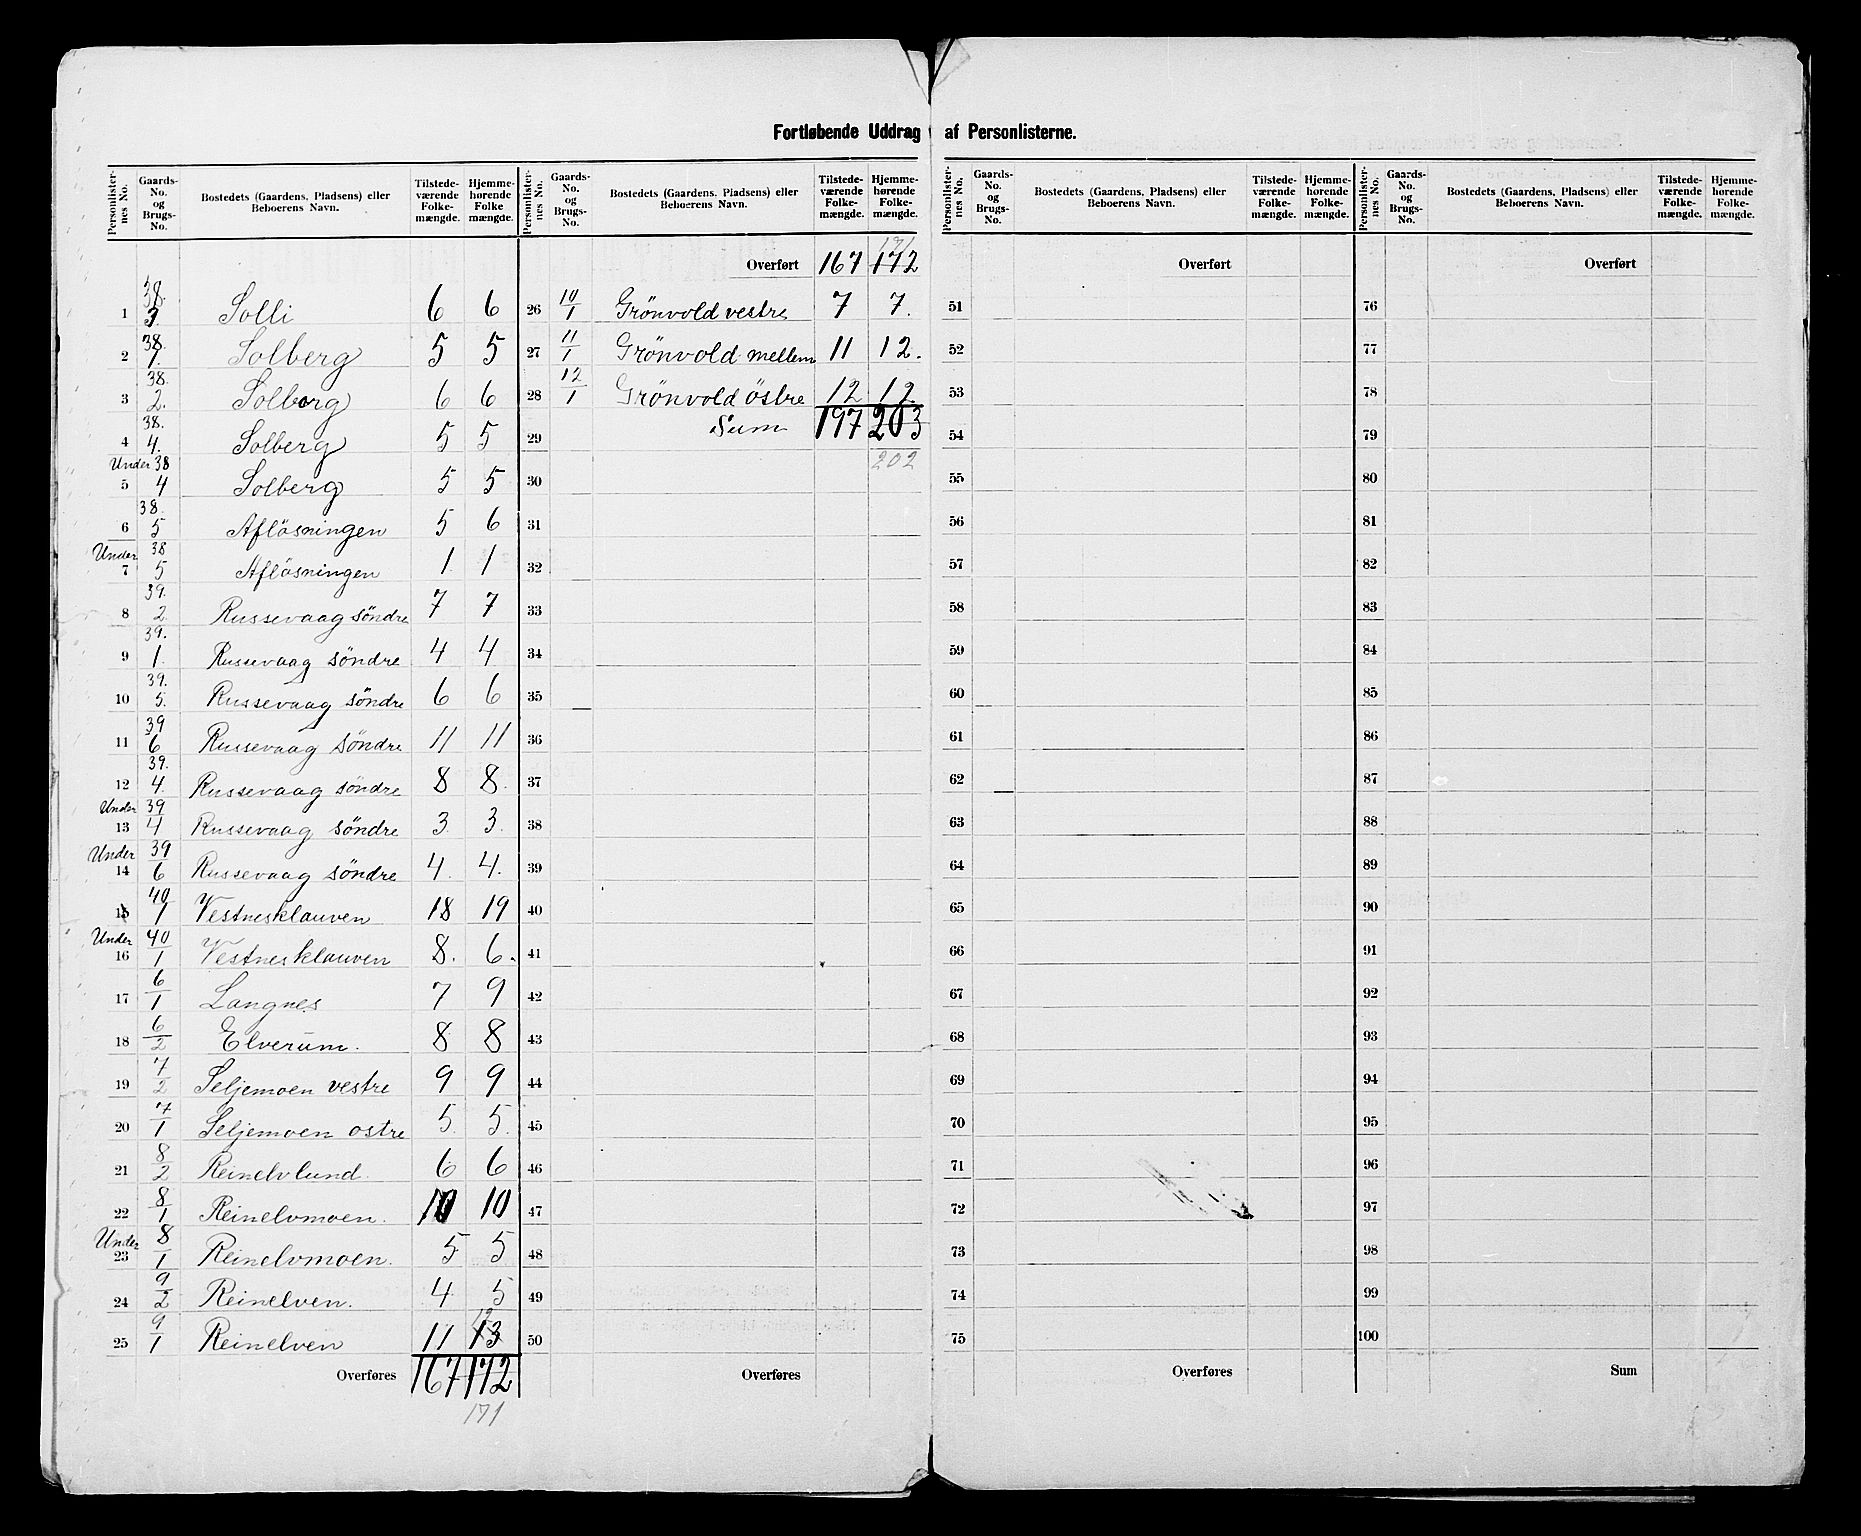 Fortløbende Uddrag af Personlisterne.
Personlister-nes No. | Gaards-No. og Brugs-No. | Bostedets (Gaardens, Pladsens) eller Beboerens Navn. | Tilstede-værende Folke-mængde. | Hjemme-hørende Folke mængde.
1 | 38. 3. | Solli | 6 | 6
2 | 38. 1. | Solberg | 5 | 5
3 | 38. 2. | Solberg | 6 | 6
4 | 38. 4. | Solberg | 5 | 5
Under 5 | 38 4 | Solberg | 5 | 5
6 | 38. 5 | Aflösningen | 5 | 6
Under 7 | 38 5 | Aflösningen | 1 | 1
8 | 39. 2 | Russevaag söndre | 7 | 7
9 | 39. 1. | Russevaag söndre | 4 | 4
10 | 39. 5. | Russevaag söndre | 6 | 6
11 | 39 6 | Russevaag söndre | 11 | 11
12 | 39. 4. | Russevaag söndre | 8 | 8.
Under 13 | 39 4 | Russevaag söndre | 3. | 3.
Under 14 | 39 6 | Russevaag söndre | 4. | 4.
15 | 40 1 | Vestnesklauven | 18 | 19
Under 16 | 40 1 | Vestnesklauven | 8. | 6.
17 | 6 1 | Langnes | 7 | 9
18 | 6 2 | Elverum. | 8 | 8
19 | 7 2 | Seljemoen vestre | 9 | 9
20 | 7 1 | Seljemoen ostre | 5. | 5.
21 | 8 2 | Reinelvlund. | 6 | 6
22 | 8 1 | Reinelvmoen. | 10 | 10
Under 23 | 8 1 | Reinelvmoen. | 5 | 5
24 | 9 2 | Reinelven. | 4 | 5
12
25 | 9 1 | Reinelven | 11 | 13
Overføres | 167 | 172
171
Personlister-nes No. | Gaards-No. og Brugs-No. | Bostedets (Gaardens, Pladsens) eller Beboerens Navn. | Tilstede-værende Folke-mængde. | Hjemme-hørende Folke-mængde.
171
Overført | 167 | 172
26 | 10 1 | Grönvold vestre | 7 | 7.
27 | 11 1 | Grönvold mellem | 11 | 12.
28 | 12 1 | Grönvold östre | 12 | 12.
29 | Sum | 197 | 203
202
30
31
32
33
34
35
36
37
38
39
40
41
42
43
44
45
46
47
48
49
50
Overføres
Personlister-nes No. | Gaards-No. og Brugs-No. | Bostedets (Gaardens, Pladsens) eller Beboerens Navn. | Tilstede-værende Folke-mængde. | Hjemme-hørende Folke-mængde.
Overført
51
52
53
54
55
56
57
58
59
60
61
62
63
64
65
66
67
68
69
70
71
72
73
74
75
Overføres
Personlister-nes No. | Gaards-No. og Brugs-No. | Bostedets (Gaardens, Pladsens) eller Beboerens Navn. | Tilstede-værende Folke-mængde. | Hjemme-hørende Folke-mængde.
Overført
76
77
78
79
80
81
82
83
84
85
86
87
88
89
90
91
92
93
94
95
96
97
98
99
100
Sum